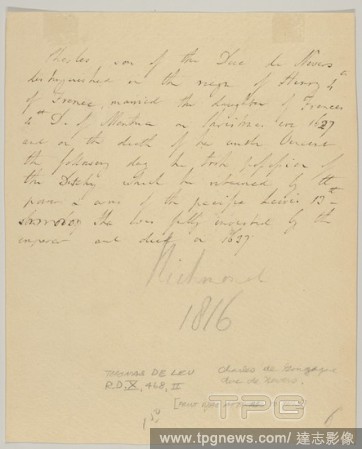 Charles son of the Duc de Nevers
distinguished in the reign of Henry 4th
of France, married the daughter of Frances
4th D. of Mantua in 1627
and on the death of his
the following day he took possession of
the Dutchy which he by the
power & arms of the Lewis 13th
He was fully invested by the
emperor and died in 1637
Richmond
1816
THOMAS DE LEU
R.D. X, 468, II
Charles de Gonzague
Duc de Nevers
TPG
www.tpgnews.com / 達志影像